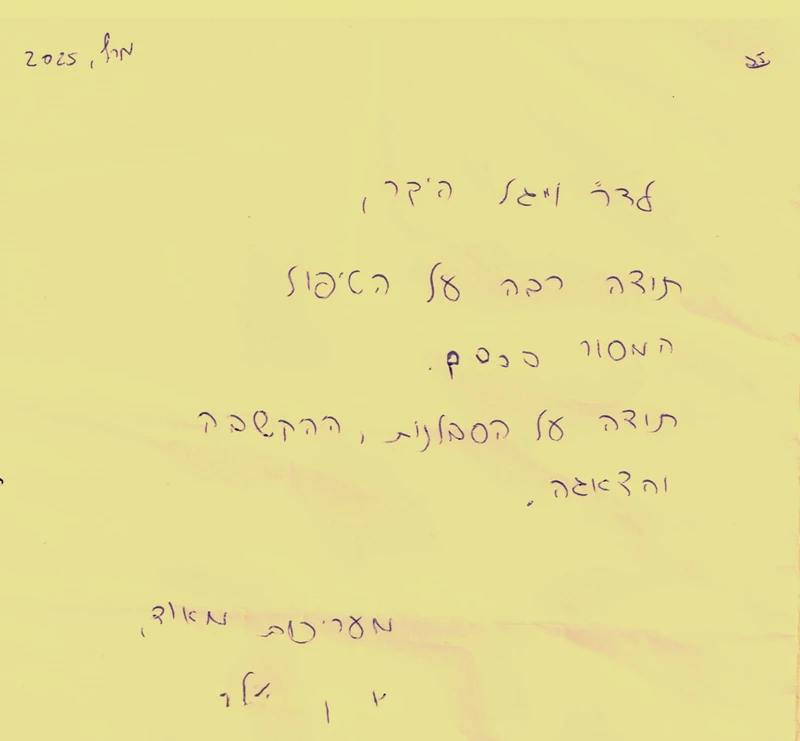 בה
מרץ, 2025
לדר' וייגל היקר,
תודה רבה על הטיפול
המסור בכסף.
תודה על הסבלנות, ההקשבה
והדאגה.
מעריכות מאוד,